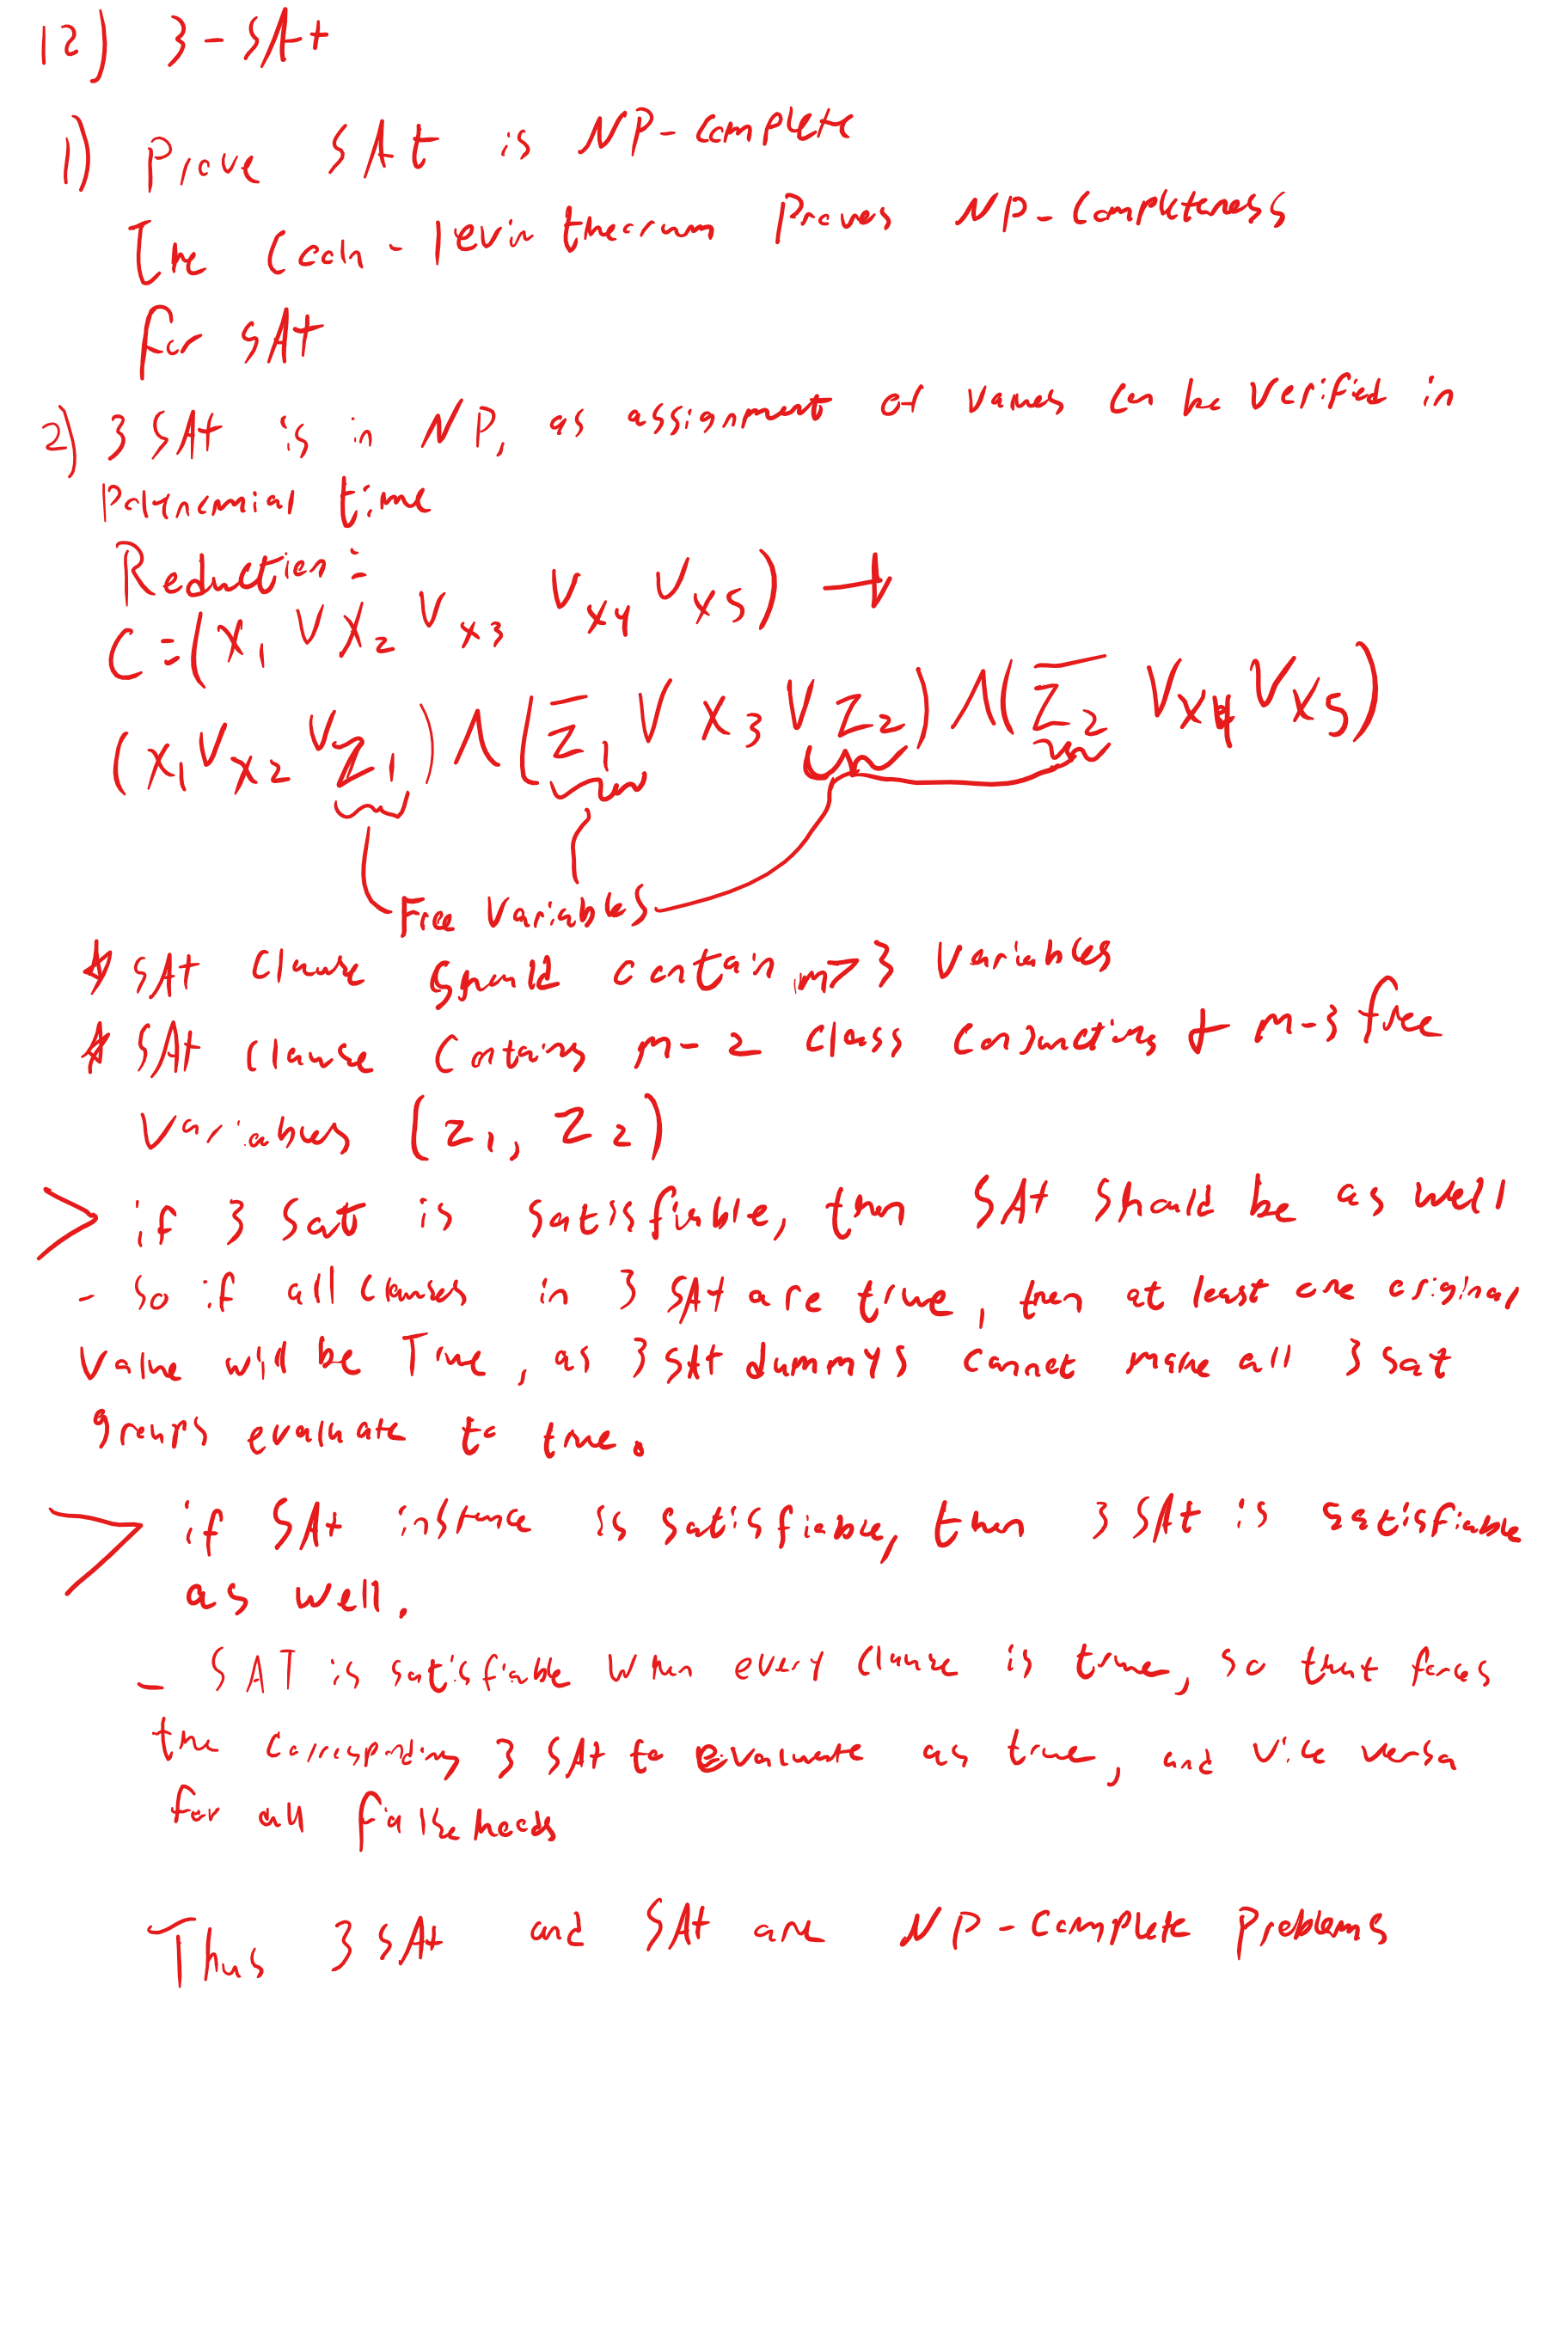 12) 3-SAt
1) Prove SAt is NP-complete
The Cook-levin theorem Proves NP-Completeness
for SAt
2) 3 SAt is in NP, as assignment of values can be verified in
Polynomial time
Reduction:
C = (x₁ V x₂ V x₃ V x₄ V x₅) →
(x₁ V x₂ V z₁) Λ (z̅₁ V x₃ V z₂) Λ (z̅₂ V x₄ V x₅)
Free Variables
* SAt Clause Should contain m>3 Variables
* SAt Clause Contains m-2 class conjunctions + m-3 free
Variables (z₁, z₂)
> if 3 Sat is satisfiable, then SAt should be as well
- So if all clauses in 3 SAt are true, then at least one original
value will be True, as 3 SAt dummys cannot make all 3 sat
groups evaluate to true.
> if SAt instance is satisfiable, then 3 SAt is satisfiable
as well.
- SAT is satisfiable when every clause is true, so that forces
the corresponding 3 SAt to evaluate as true, and vice versa
for all falsehoods
Thus 3 SAt and SAt are NP-complete Problems